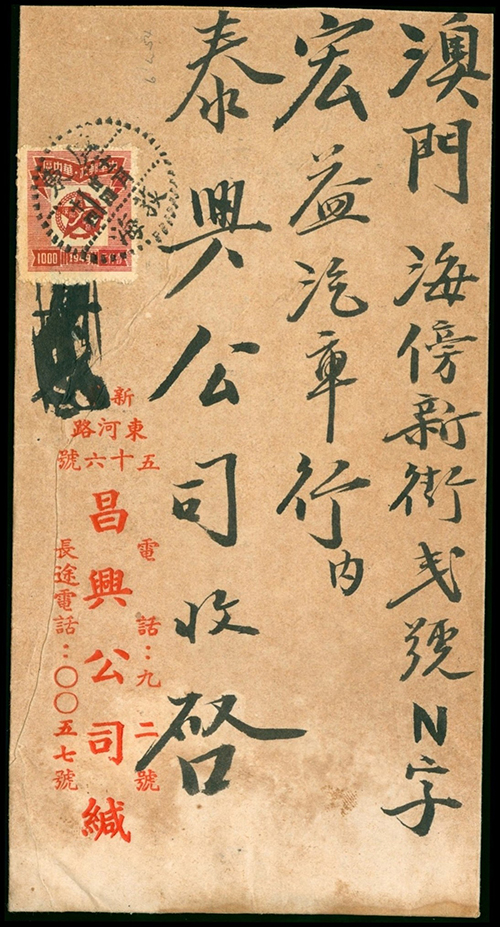 澳門海傍新街弍號N字
宏益汽車行内
泰興公司收啓
新
東河路
五十六號
電話：九二號
昌興公司緘
長途電話：〇〇五七號
1000